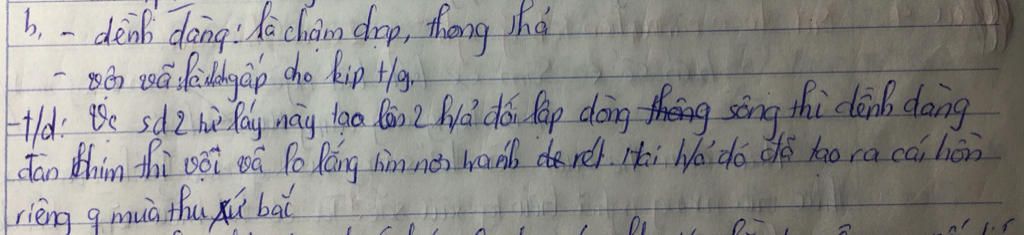 b, - dềnh dàng: là chậm chạp, thong thả
- vội vã: là gấp cho kịp t/g.
- t/d: Vc sd 2 từ láy này tạo lên 2 h/ả đối lập dòng sông thì dềnh dàng
đàn chim thì vội vã lo lắng tìm nơi tránh de rét. Hai h/ả đó đã tạo ra cái hồn
riêng q mùa thu xứ bắc